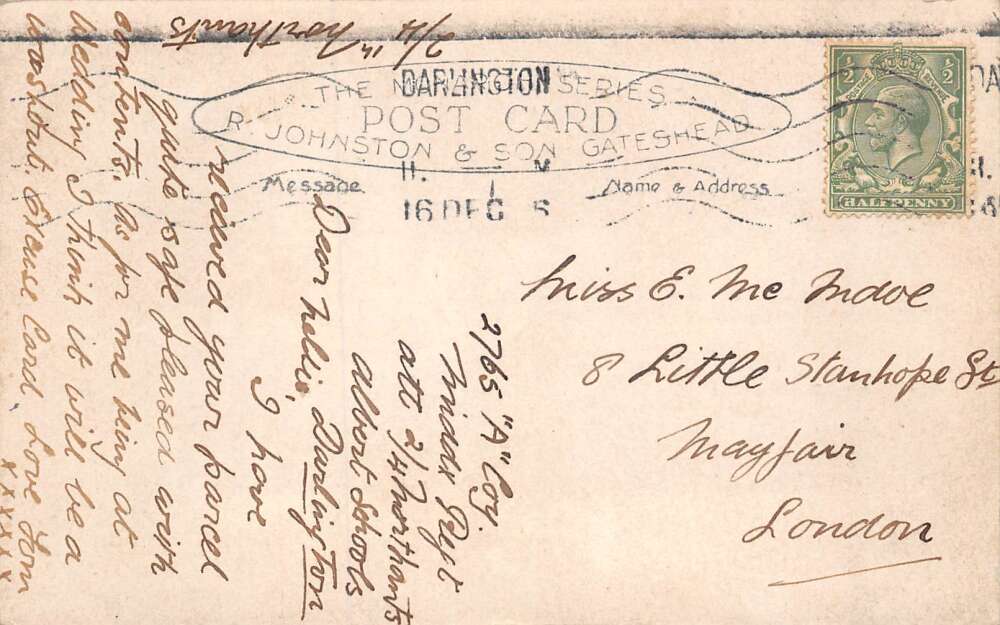 2/4th Northants
THE MONARCH SERIES
POST CARD
R. JOHNSTON & SON GATESHEAD
Message
Name & Address
DARLINGTON
16 DEC
½ ½
HALFPENNY
2765 "A" Coy.
Middx Regt
att 2/4 Northants
Albert Schools
Darlington
Dear Nellie,
I have
received your parcel
quite safe pleased with
contents, as for me being at
Wedding I think it will be a
washout. Excuse Card. Love Tom
xxxxx
Miss E. Mc
8 Little Stanhope St
Mayfair
London